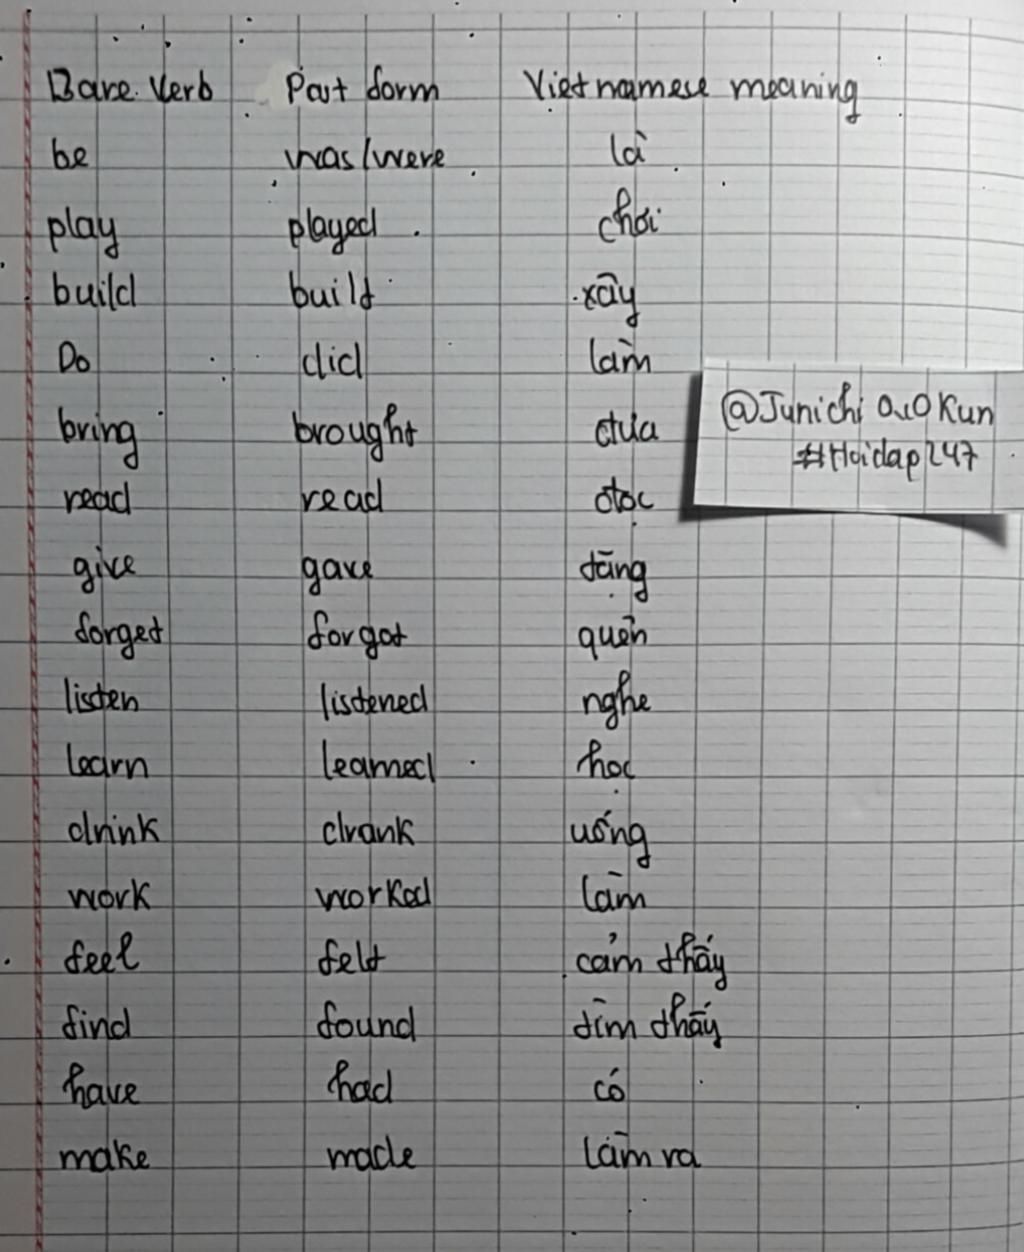 Bare Verb Past form Vietnamese meaning
be was/were là
play played chơi
build built xây
Do did làm
bring brought đưa
read read đọc
give gave tặng
forget forgot quên
listen listened nghe
learn learned học
drink drank uống
work worked làm
feel felt cảm thấy
find found tìm thấy
have had có
make made làm ra
@Junichi OuO Kun
#Hoidap247